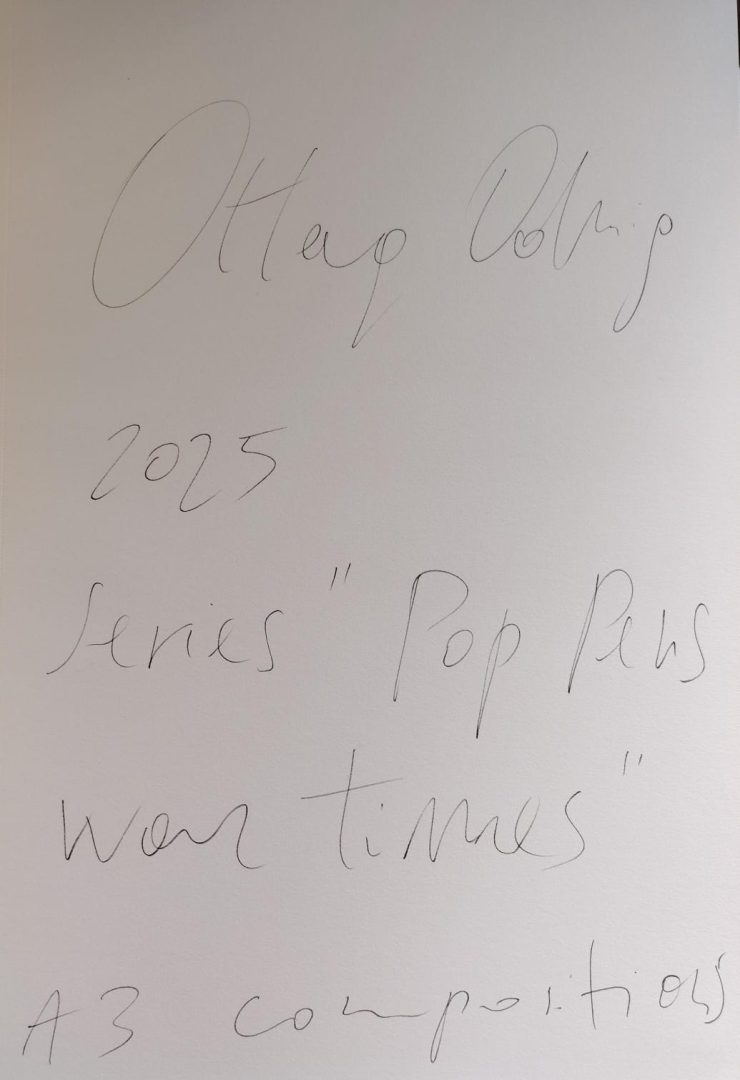 2025
Series "Pop Pens
War times"
A3 compositions